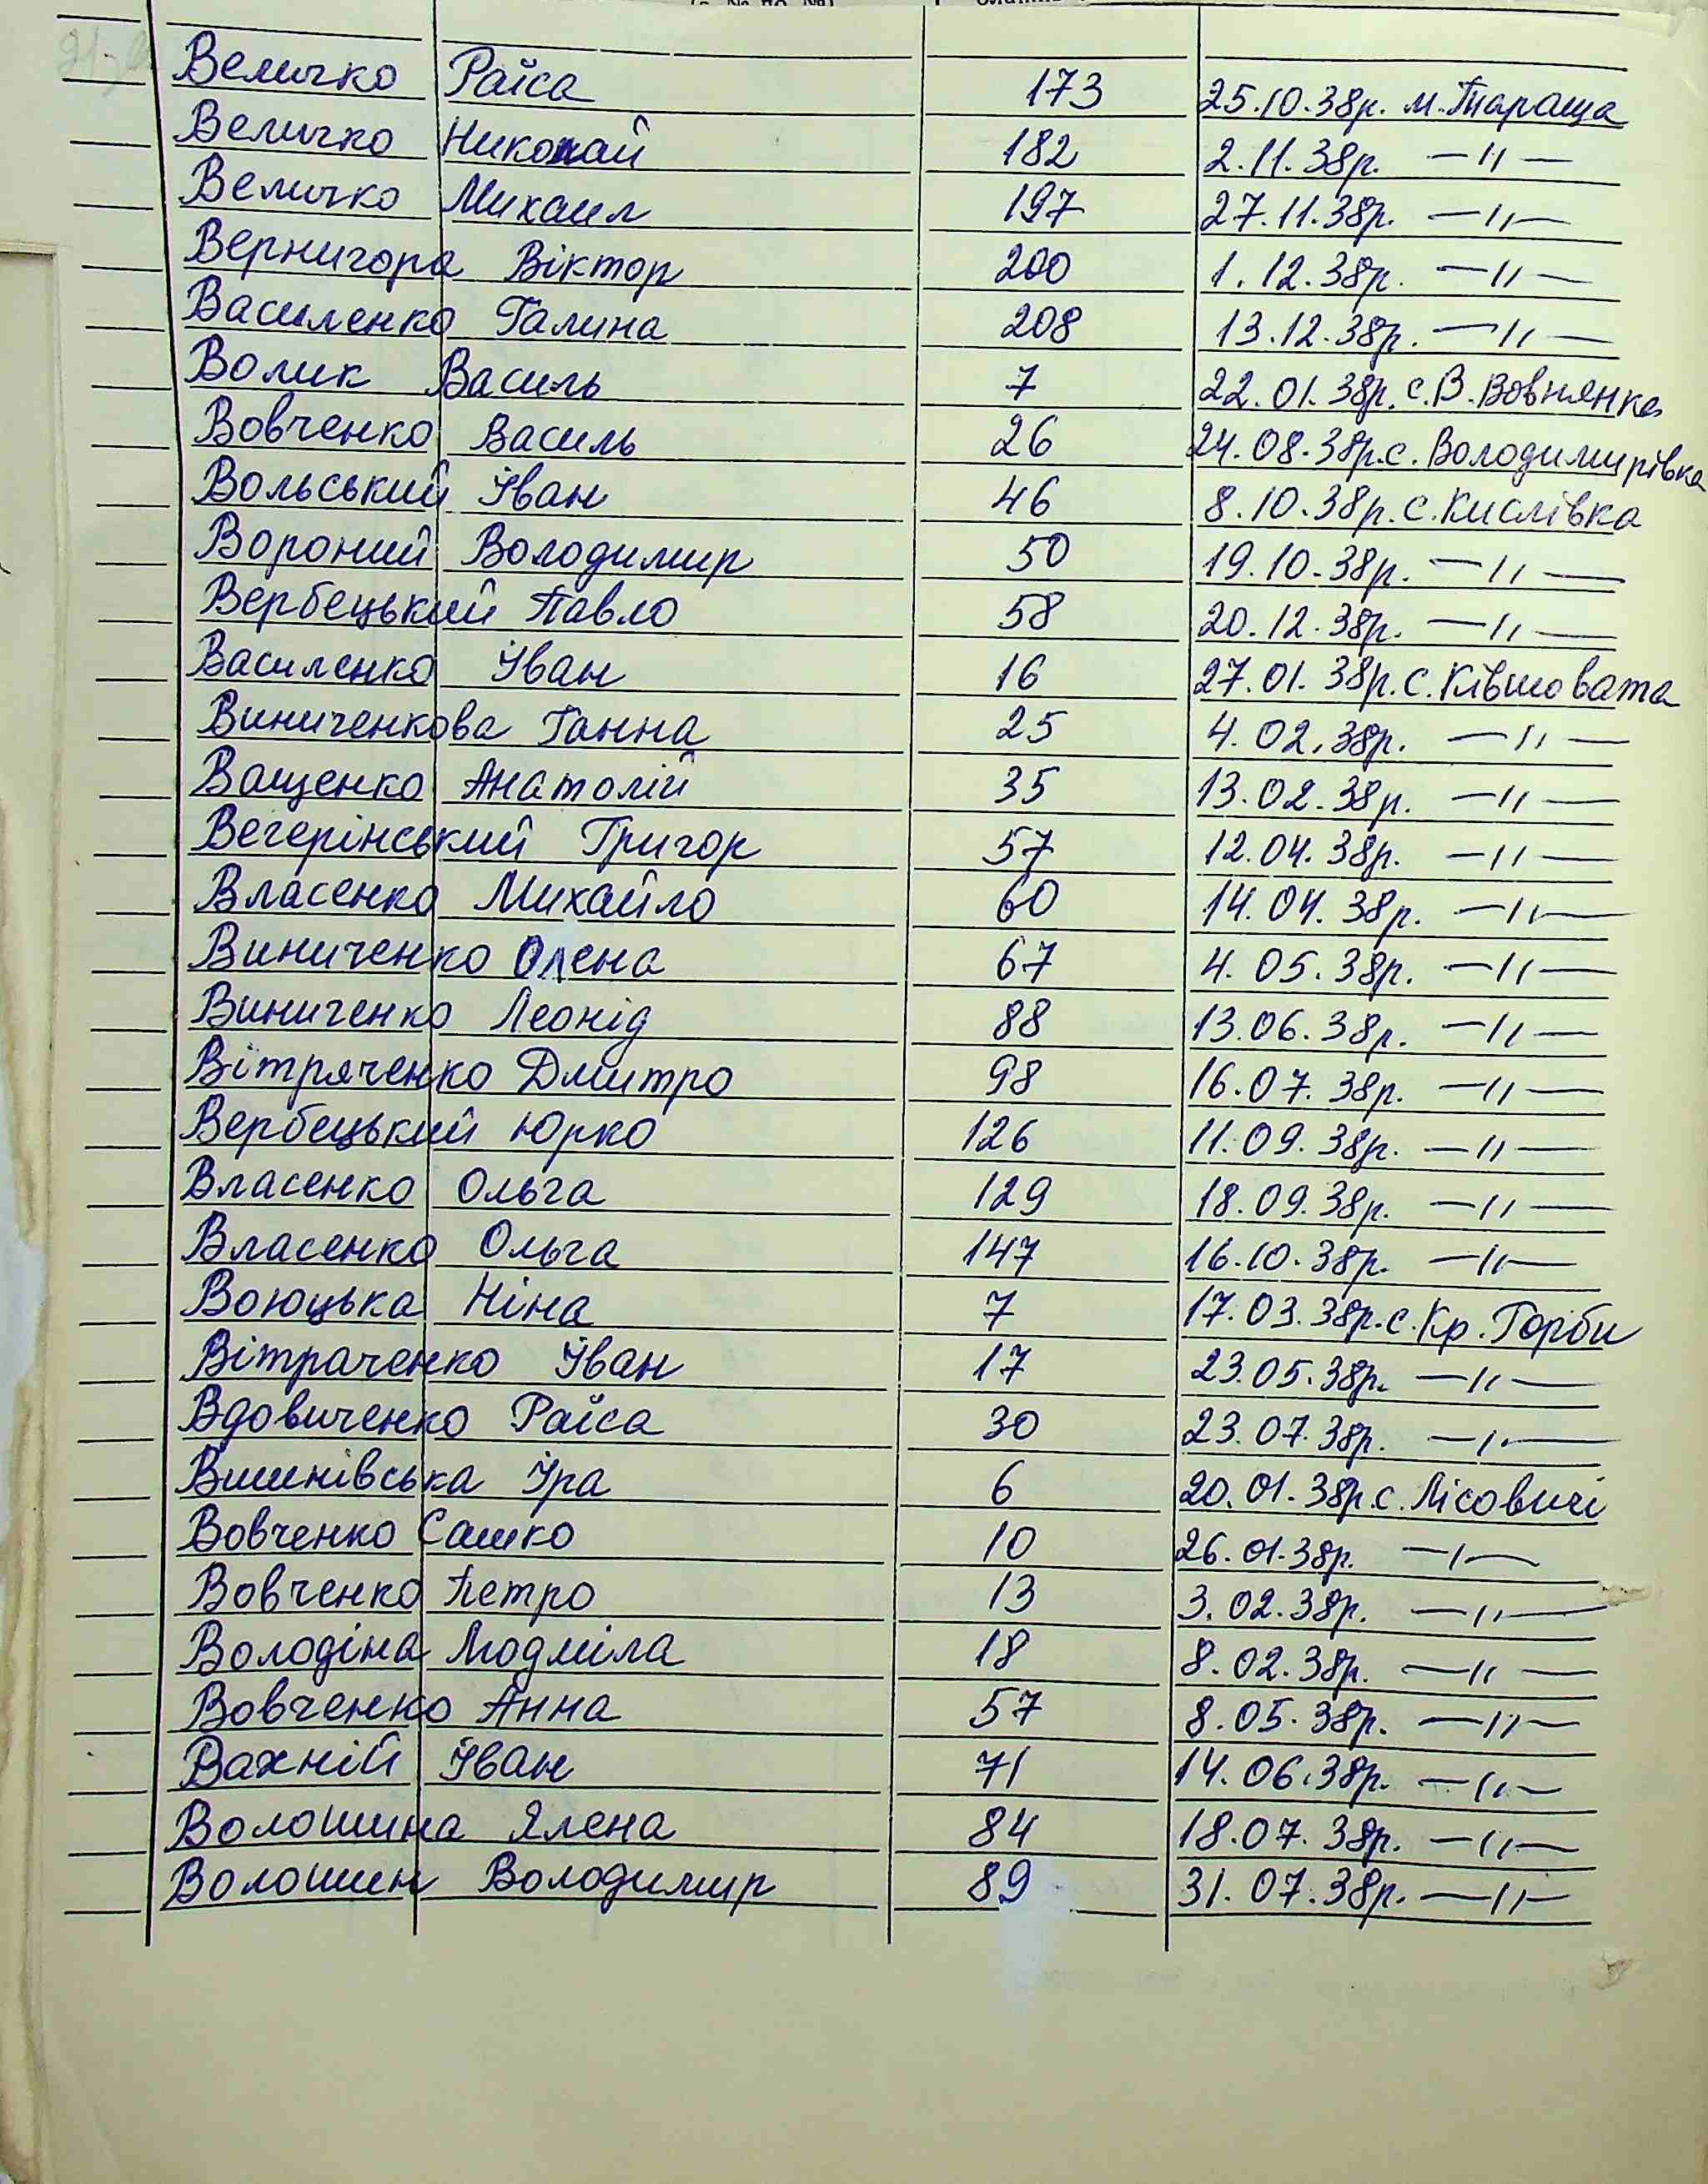 Величко Раїса 173 25.10.38р. м. Тараща
Величко Николай 182 2.11.38р. —〃—
Величко Михаил 197 27.11.38р. —〃—
Вернигора Віктор 200 1.12.38р. —〃—
Василенко Галина 208 13.12.38р. —〃—
Волик Василь 7 22.01.38р. с. В. Вовнянка
Вовченко Василь 26 24.08.38р. с. Володимирівка
Вольський Іван 46 8.10.38р. с. Кислівка
Вороний Володимир 50 19.10.38р. —〃—
Вербецький Павло 58 20.12.38р. —〃—
Василенко Іван 16 27.01.38р. с. Ківшовата
Виниченкова Ганна 25 4.02.38р. —〃—
Ващенко Анатолій 35 13.02.38р. —〃—
Вегерінський Григор 57 12.04.38р. —〃—
Власенко Михайло 60 14.04.38р. —〃—
Виниченко Олена 67 4.05.38р. —〃—
Виниченко Леонід 88 13.06.38р. —〃—
Вітряченко Дмитро 98 16.07.38р. —〃—
Вербецький Юрко 126 11.09.38р. —〃—
Власенко Ольга 129 18.09.38р. —〃—
Власенко Ольга 147 16.10.38р. —〃—
Воюцька Ніна 7 17.03.38р. с. Кр. Горби
Вітраченко Іван 17 23.05.38р. —〃—
Вдовиченко Раїса 30 23.07.38р. —〃—
Вишнівська Іра 6 20.01.38р. с. Лісовичі
Вовченко Сашко 10 26.01.38р. —〃—
Вовченко Петро 13 3.02.38р. —〃—
Володіна Людміла 18 8.02.38р. —〃—
Вовченко Анна 57 8.05.38р. —〃—
Вахній Іван 71 14.06.38р. —〃—
Волошина Ялена 84 18.07.38р. —〃—
Волошин Володимир 89 31.07.38р. —〃—